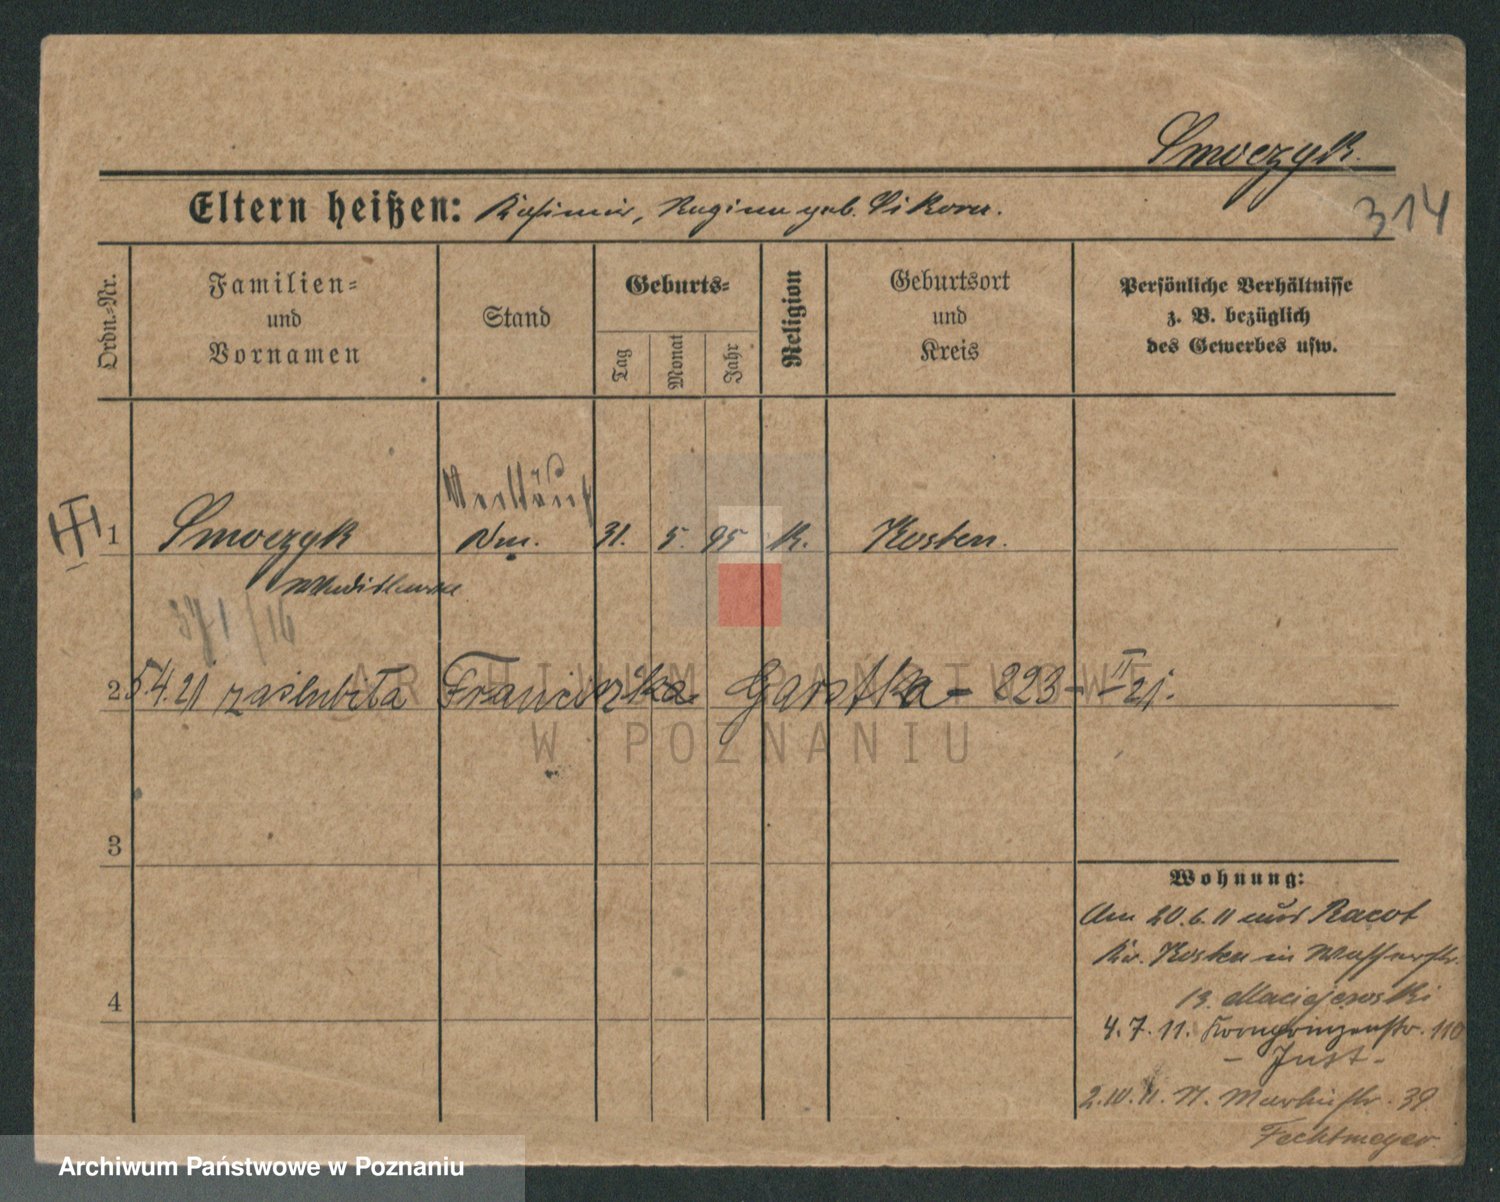 Smoczyk.
Eltern heißen: Kasimir, Regina geb. Sikora.
314
Ordn.-Nr.
Familien-
und
Vornamen
Stand
Geburts-
Tag
Monat
Jahr
Religion
Geburtsort
und
Kreis
Persönliche Verhältnisse
z. B. bezüglich
des Gewerbes usw.
1 Smoczyk 31. 5. 95 K. Kosten.
Wladislawa
371/16
2 5.4.21 zaślubiła Franciszka Garstka - 223 - II - 21.
3
4
Wohnung:
Am 20.6.11 aus Racot
Kr. Kosten in Wasserstr.
13. Maciejewski
4.7.11. Kronprinzenstr. 110
- Just -
2.10.11. N. Martinstr. 39
Fechtmeyer.
ARCHIWUM PAŃSTWOWE
W POZNANIU
Archiwum Państwowe w Poznaniu